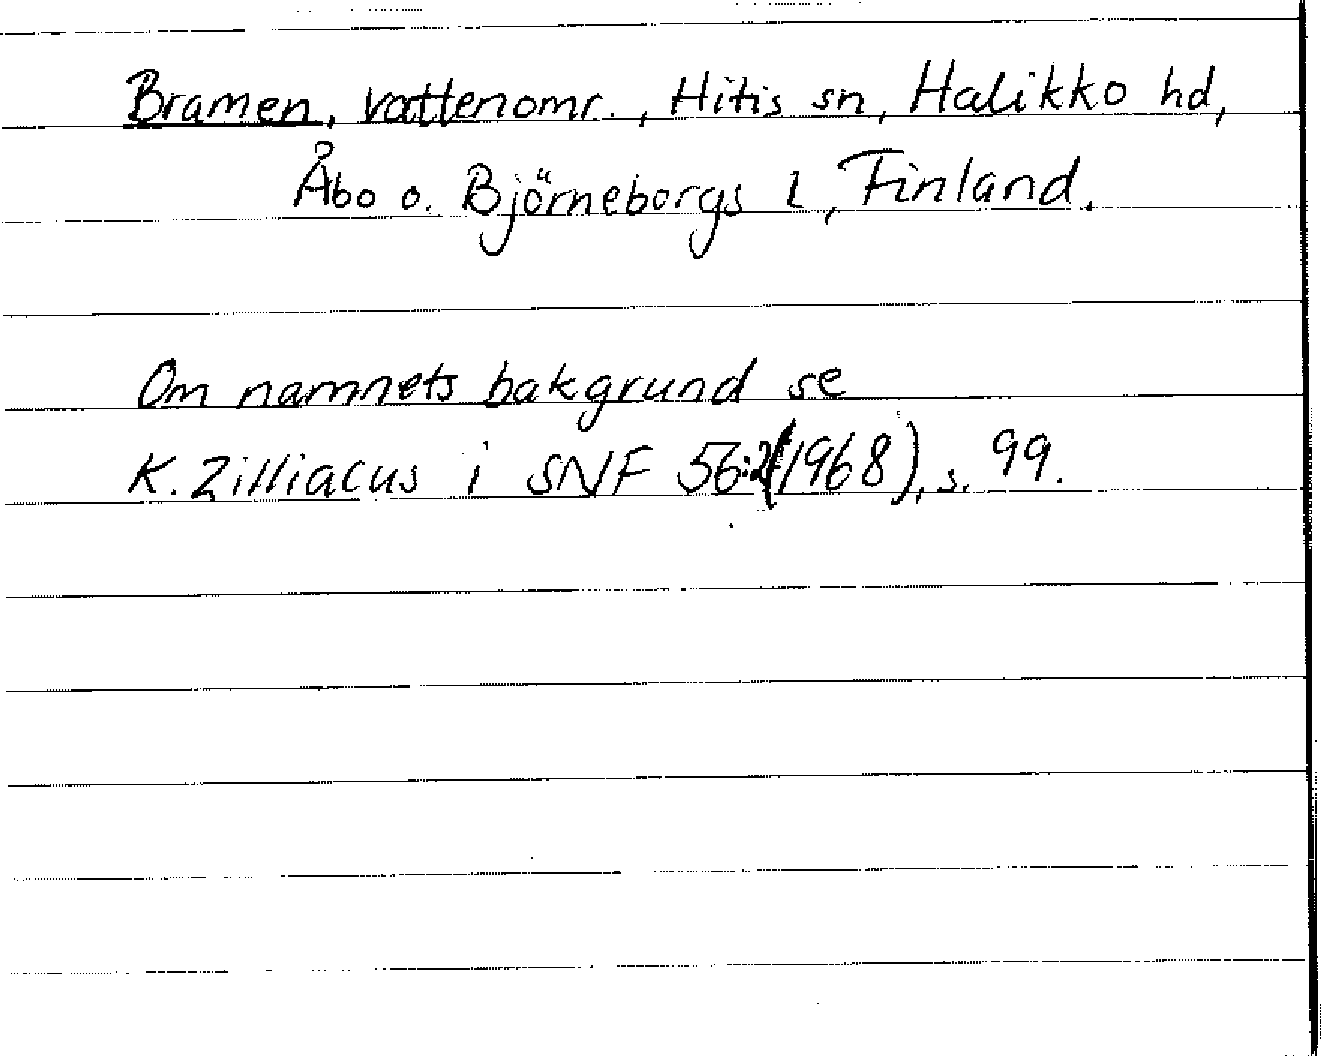 Bramen, vattenomr., Hitis sn, Halikko hd,
Åbo o. Björneborgs l, Finland.
Om namnets bakgrund se
K. Zilliacus i SNF 56:2(1968), s. 99.